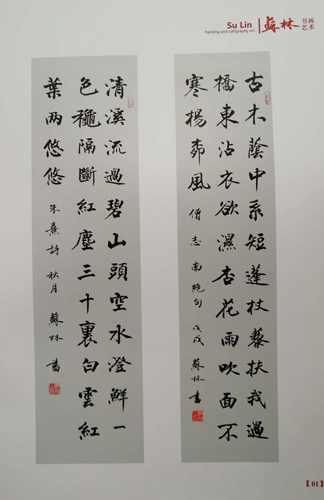 Su Lin
Painting and calligraphy art
蘇林
书画
艺术
古木蔭中系短蓬杖藜扶我過
橋東沾衣欲濕杏花雨吹面不
寒楊桺風 僧志南絕句 戊戌 蘇林書
清溪流過碧山頭空水澄鮮一
色穐隔斷紅塵三十裏白雲紅
葉兩悠悠 朱熹詩 秋月 蘇林書
【01】